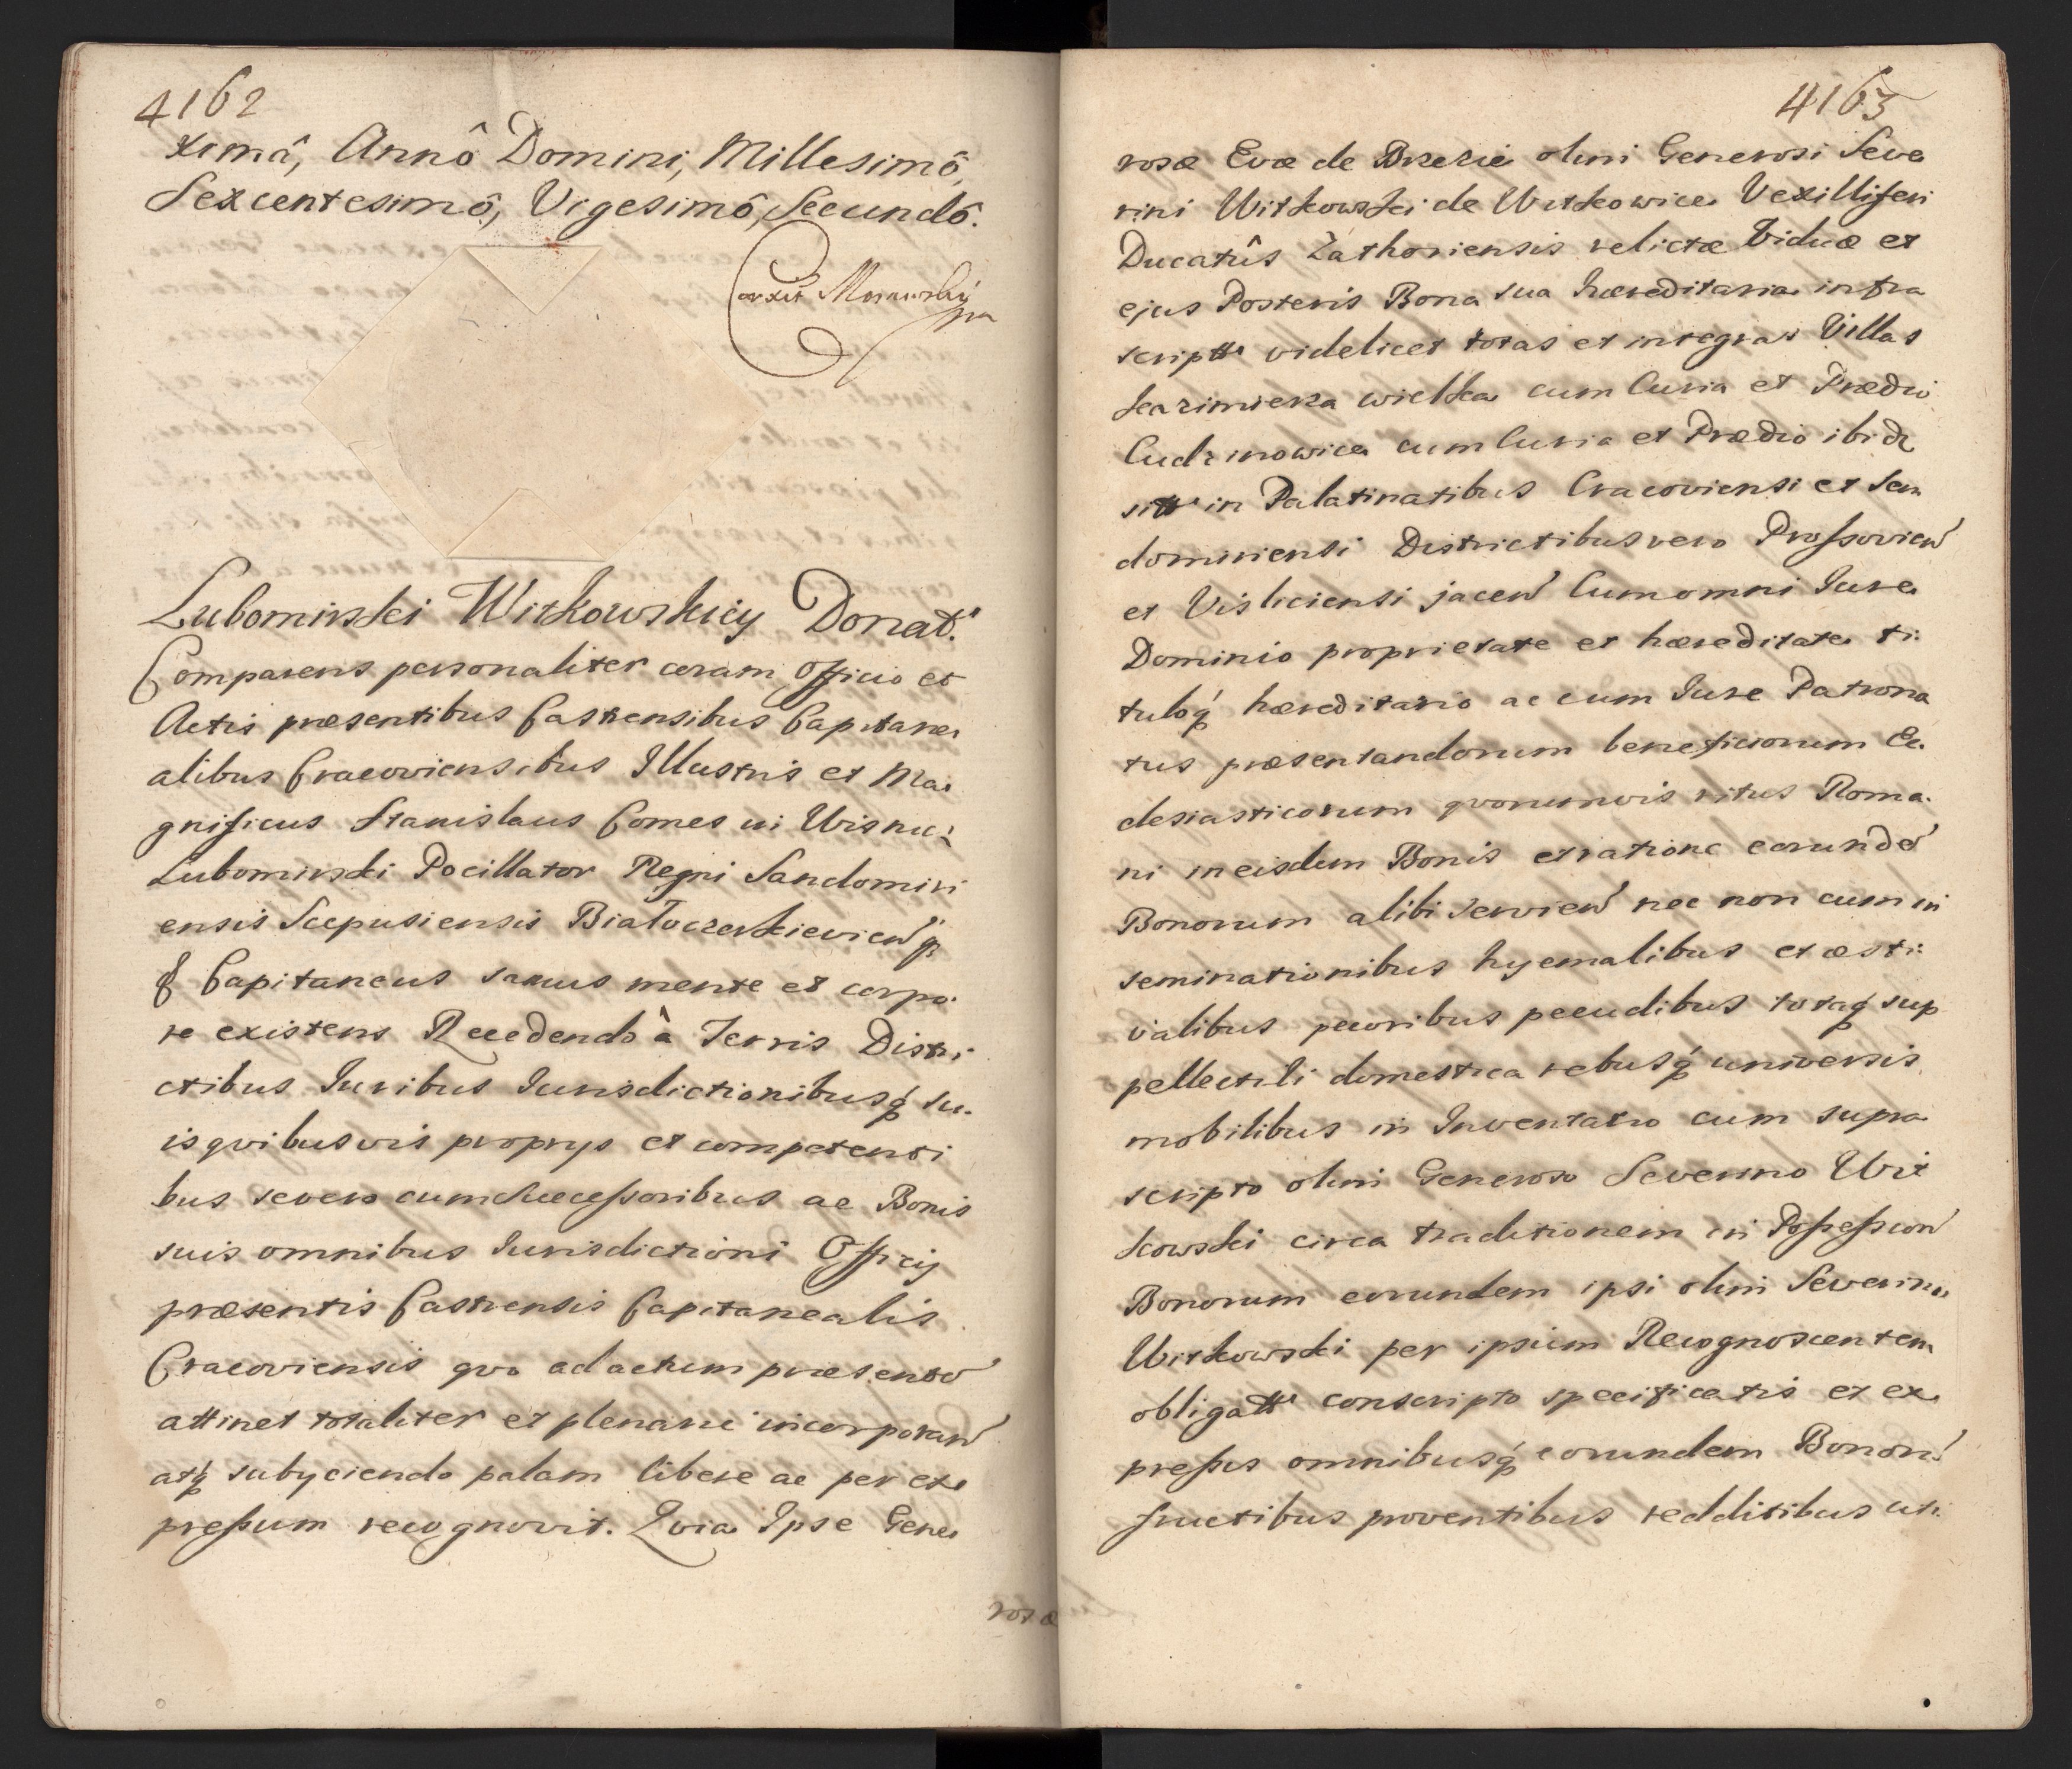 4162
ximâ, Annô Domini, Millesimô,
Sexcentesimô, Vigesimô, Secundô.
Lubomirski Witkowskiey Donat.
Comparens personaliter coram Officio et
Actis præsentibus Castrensibus Capitane
alibus Cracoviensibus Illustris et Ma
gnificus Stanislaus Comes in Wisnicz
Lubomirski Pocillator Regni Sandomiri
ensis Scepusiensis Białocerkievien
Capitaneus sanus mente et corpo
re existens Recedendo à Terris Distri
ctibus Juribus Jurisdictionibusq́ su
is qvibusvis proprys et competenti
bus se vero cum Successoribus ac Bonis
suis omnibus Jurisdictioni Officij
præsentis Castrensis Capitanealis
Cracoviensis qvo ad actum præsente
attinet totaliter et plenarie incorporan
atq́ subyciendo palam libere ac per ex
pressum recognovit. Qvia Ipse Gene
rosæ
4163
rosæ Evæ de Brzezie olim Generosi Seve
rini Witkowski de Witkowice Vexilliferi
Ducatûs Zathoriensis relictæ Viduæ et
ejus Posteris Bona sua hæreditaria infra
scriptt videlicet totas et integras Villas
Kazimierza wielka cum Curia et Prædio
Cudzinowice cum Curia et Prædio ibid
sitt in Palatinatibus Cracoviensi et San
domiriensi Districtibus vero Prossovien
et Visliciensi jacen Cum omni Jure
Dominio proprietate et hæreditate ti
tuloq́ hæreditario ac cum Jure Patrona
tus præsentandorum beneficiorum Ec
clesiasticorum qvorumvis ritus Roma
ni in eisdem Bonis et ratione eorunde
Bonorum alibi servien nec non cum in
seminationibus hyemalibus et æsti
valibus pecoribus pecudibus totaq́ sup
pellectili domestica rebusq́ universis
mobilibus in Inventario cum supra
scripto olim Generoso Severino Wit
kowski circa traditionem in Possession
Bonorum eorundem ipsi olim Severino
Witkowski per ipsum Recognoscentem
obligatt conscripto specificatis et ex
pressis omnibusq́ eorundem Bonor
fructibus proventibus redditibus uti